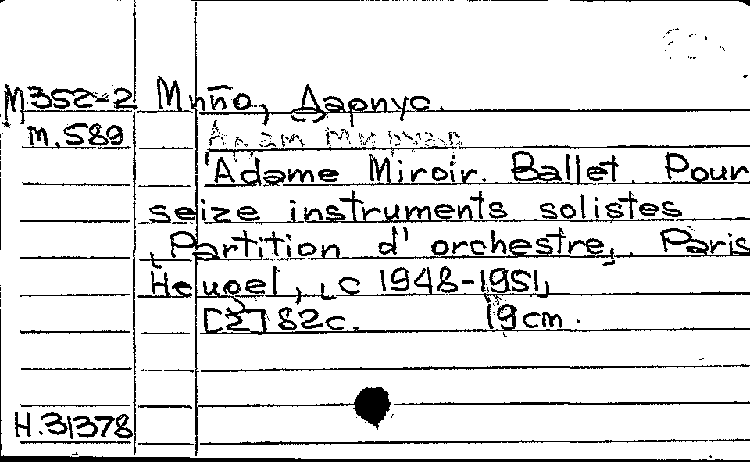 М352-2 Мийо, Дариус.
М.589 Адам Мируар
'Adame Miroir. Ballet. Pour
seize instruments solistes
[Partition d'orchestre]. Paris
Heugel, [c 1948-1951]
[2] 82с. 19cm.
Н.31378